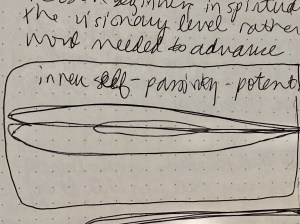 beginner in spiritual
the visionary level rather
word needed to advance
inner self - passivity - potent